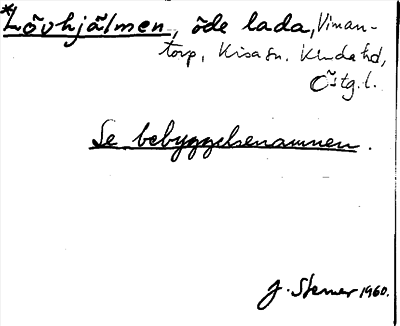 *Lövhjälmen, öde lada, Viman-
torp, Kisa sn. Kinda hd,
Östg.l.
Se bebyggelsenamnen.
J. Sterner 1960.